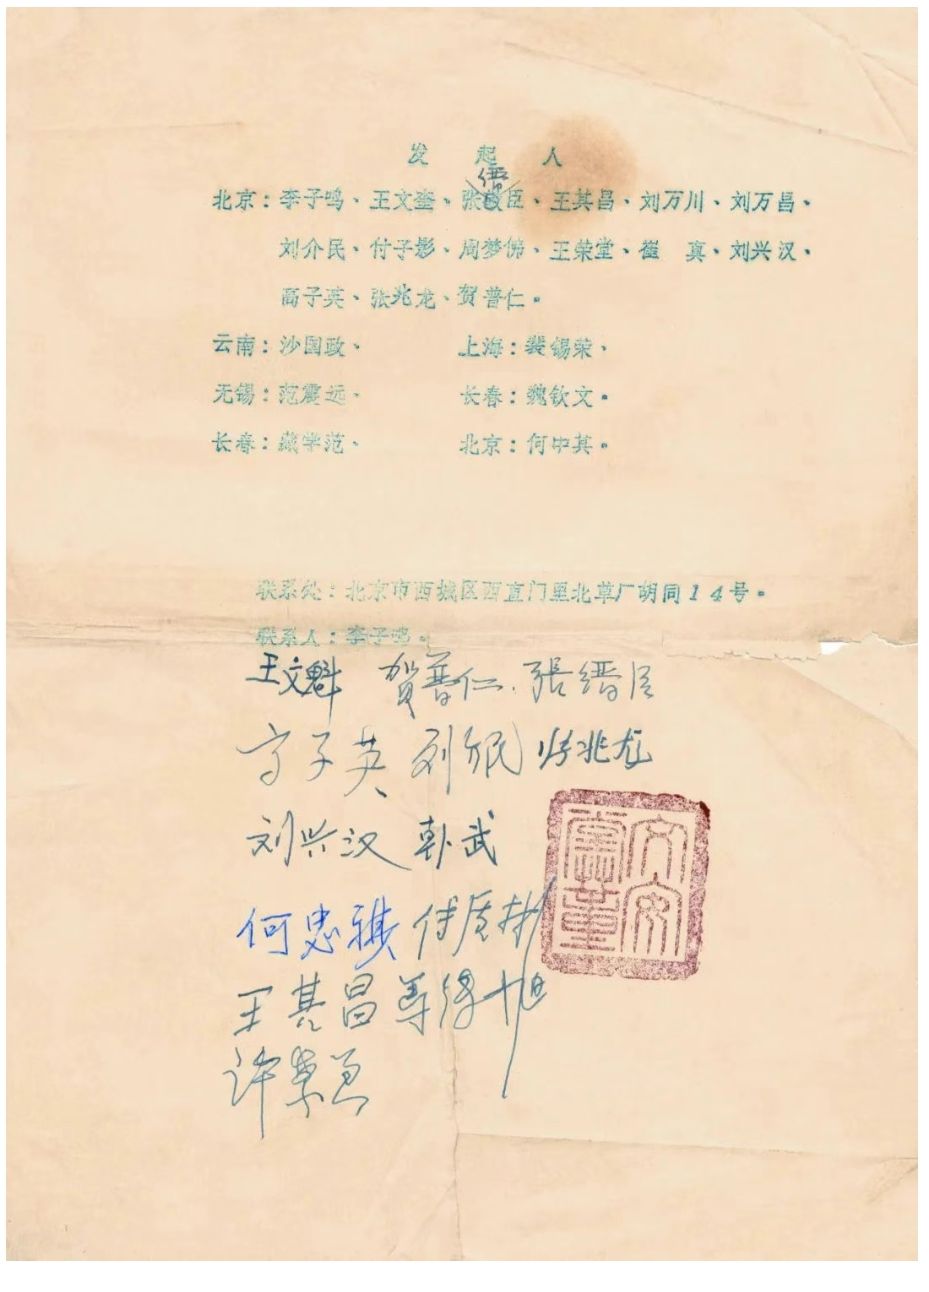 发 起 人
缙
北京：李子鸣、王文奎、张臣、王其昌、刘万川、刘万昌、
刘介民、付子影、周梦佛、王荣堂、崔 真、刘兴汉、
高子英、张兆龙、贺普仁。
云南：沙国政、 上海：裴锡荣、
无锡：范震远、 长春：魏钦文。
长春：藏学范、 北京：何中其。
联系处：北京市西城区西直门里北草厂胡同14号。
联系人：李子鸣。
王文魁 贺普仁．張缙臣
高子英 刘 张兆龙
刘兴汉 韩武
何忠祺
王其昌
许